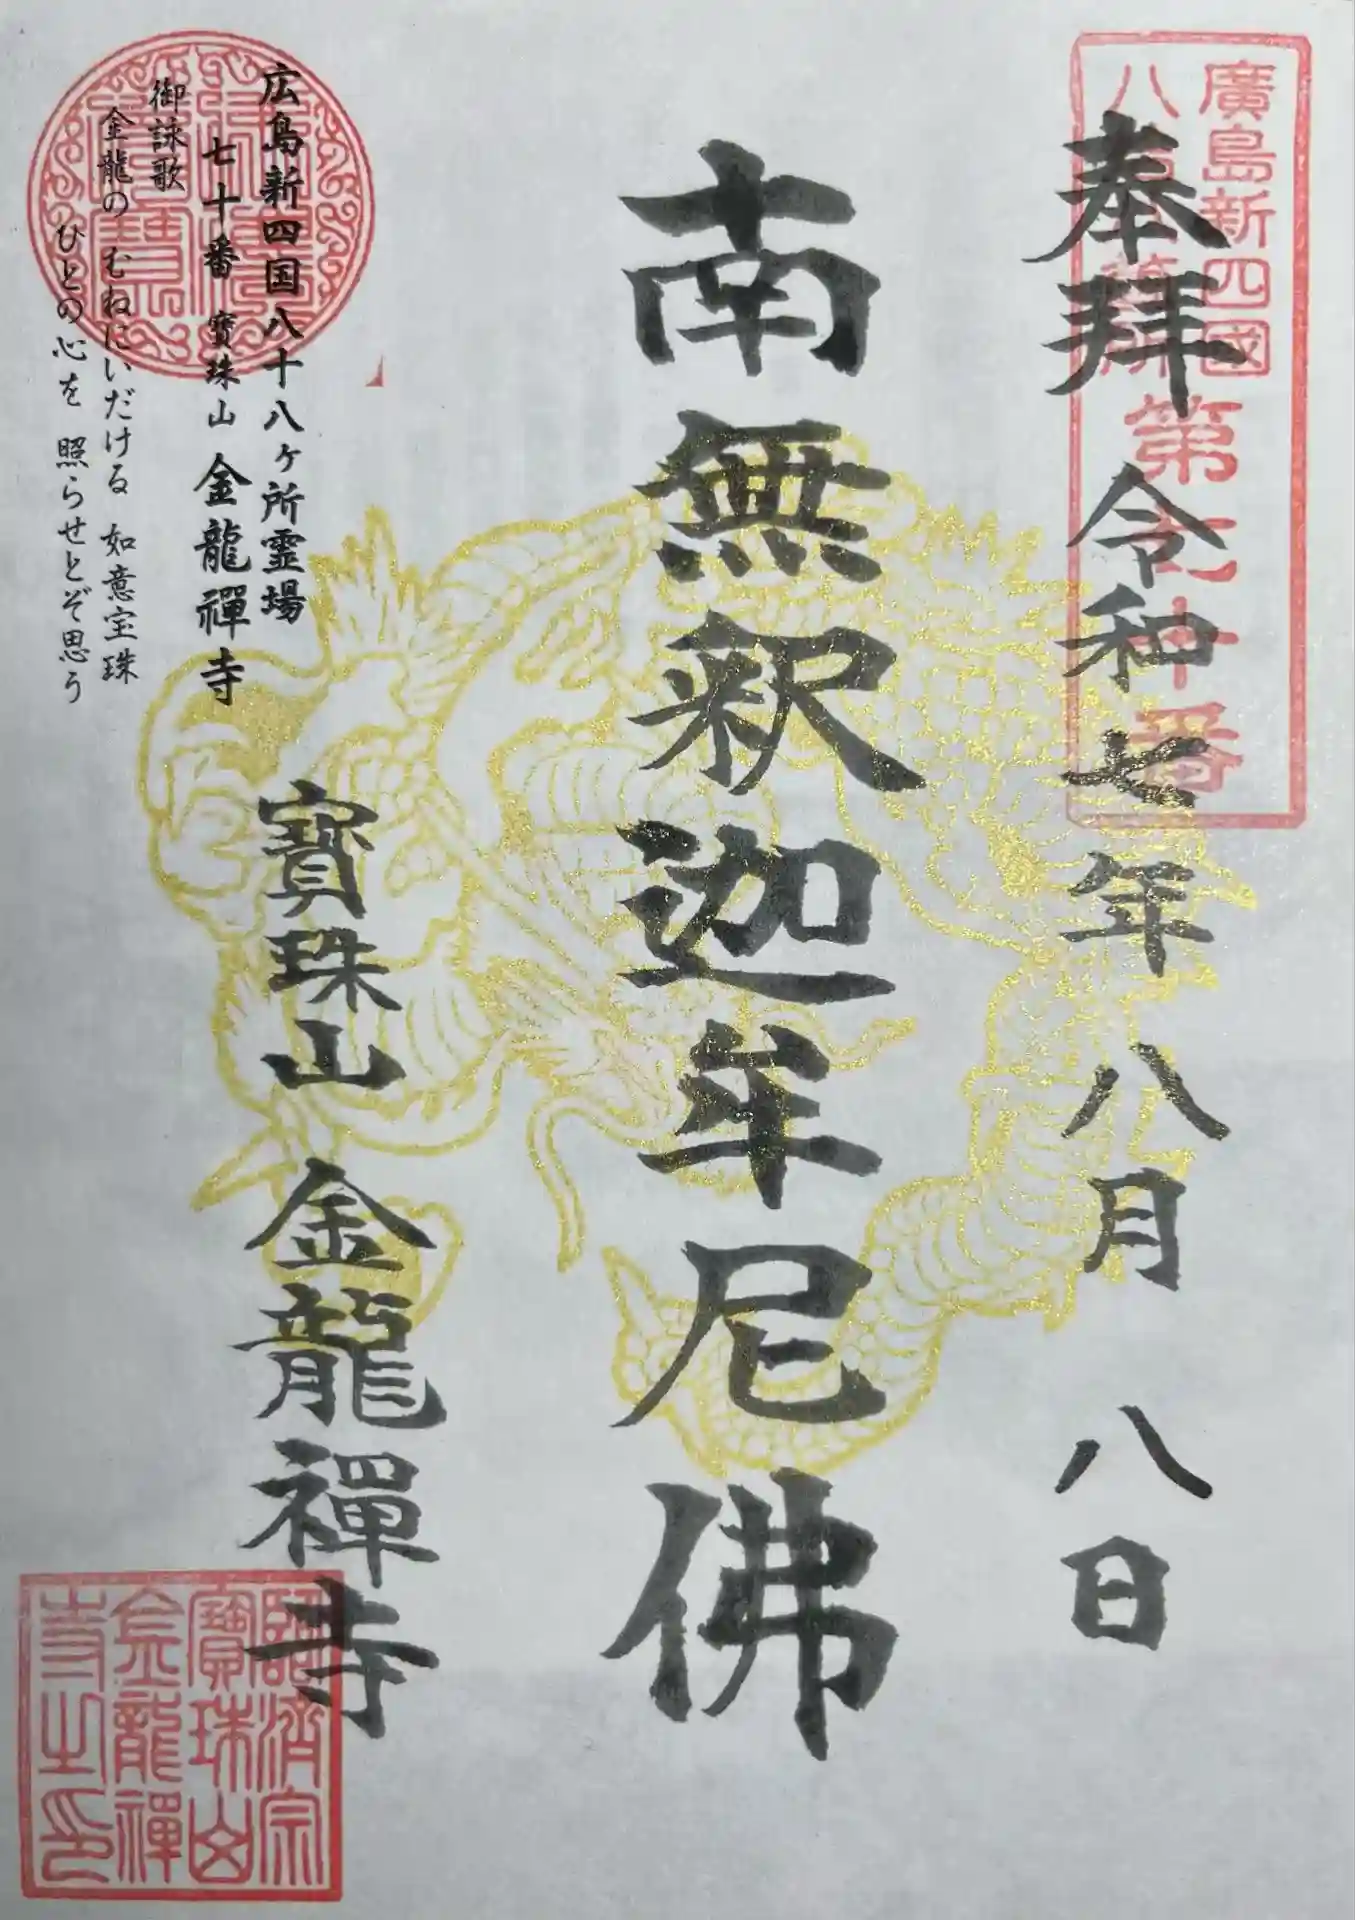 廣島新四國
八十八ヶ所
第七十番
奉拜 令和七年八月八日
南無釈迦牟尼佛
寶珠山 金龍禪寺
広島新四国八十八ヶ所霊場
七十番 寶珠山 金龍禪寺
御詠歌
金龍の むねにいだける 如意宝珠
ひとの心を 照らせとぞ思う
臨濟宗
寶珠山
金龍禪
寺之印